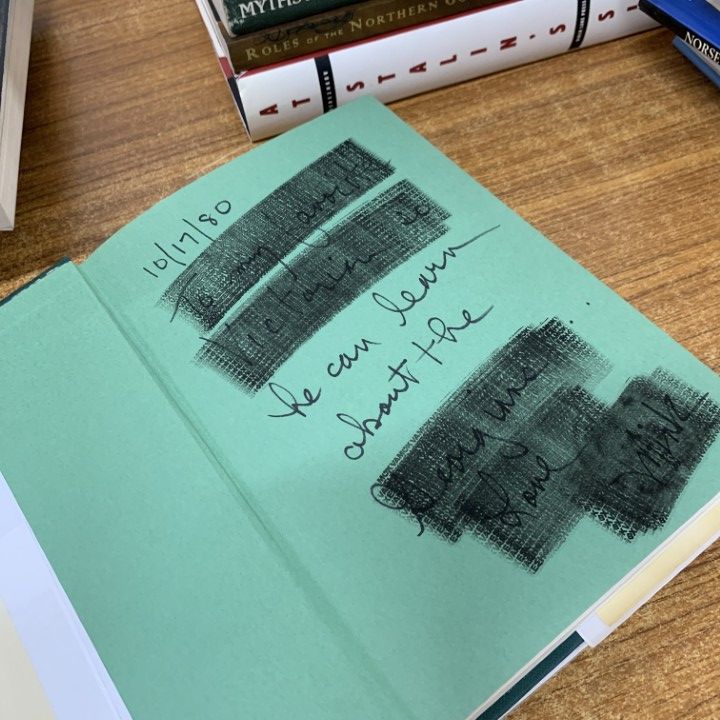 MYTHS
ROLES OF THE NORTHERN GO
AT STALIN'S SI
NORSE
10/17/80
To my favorite
Victorian so
he can learn
about the
Georgians
Love